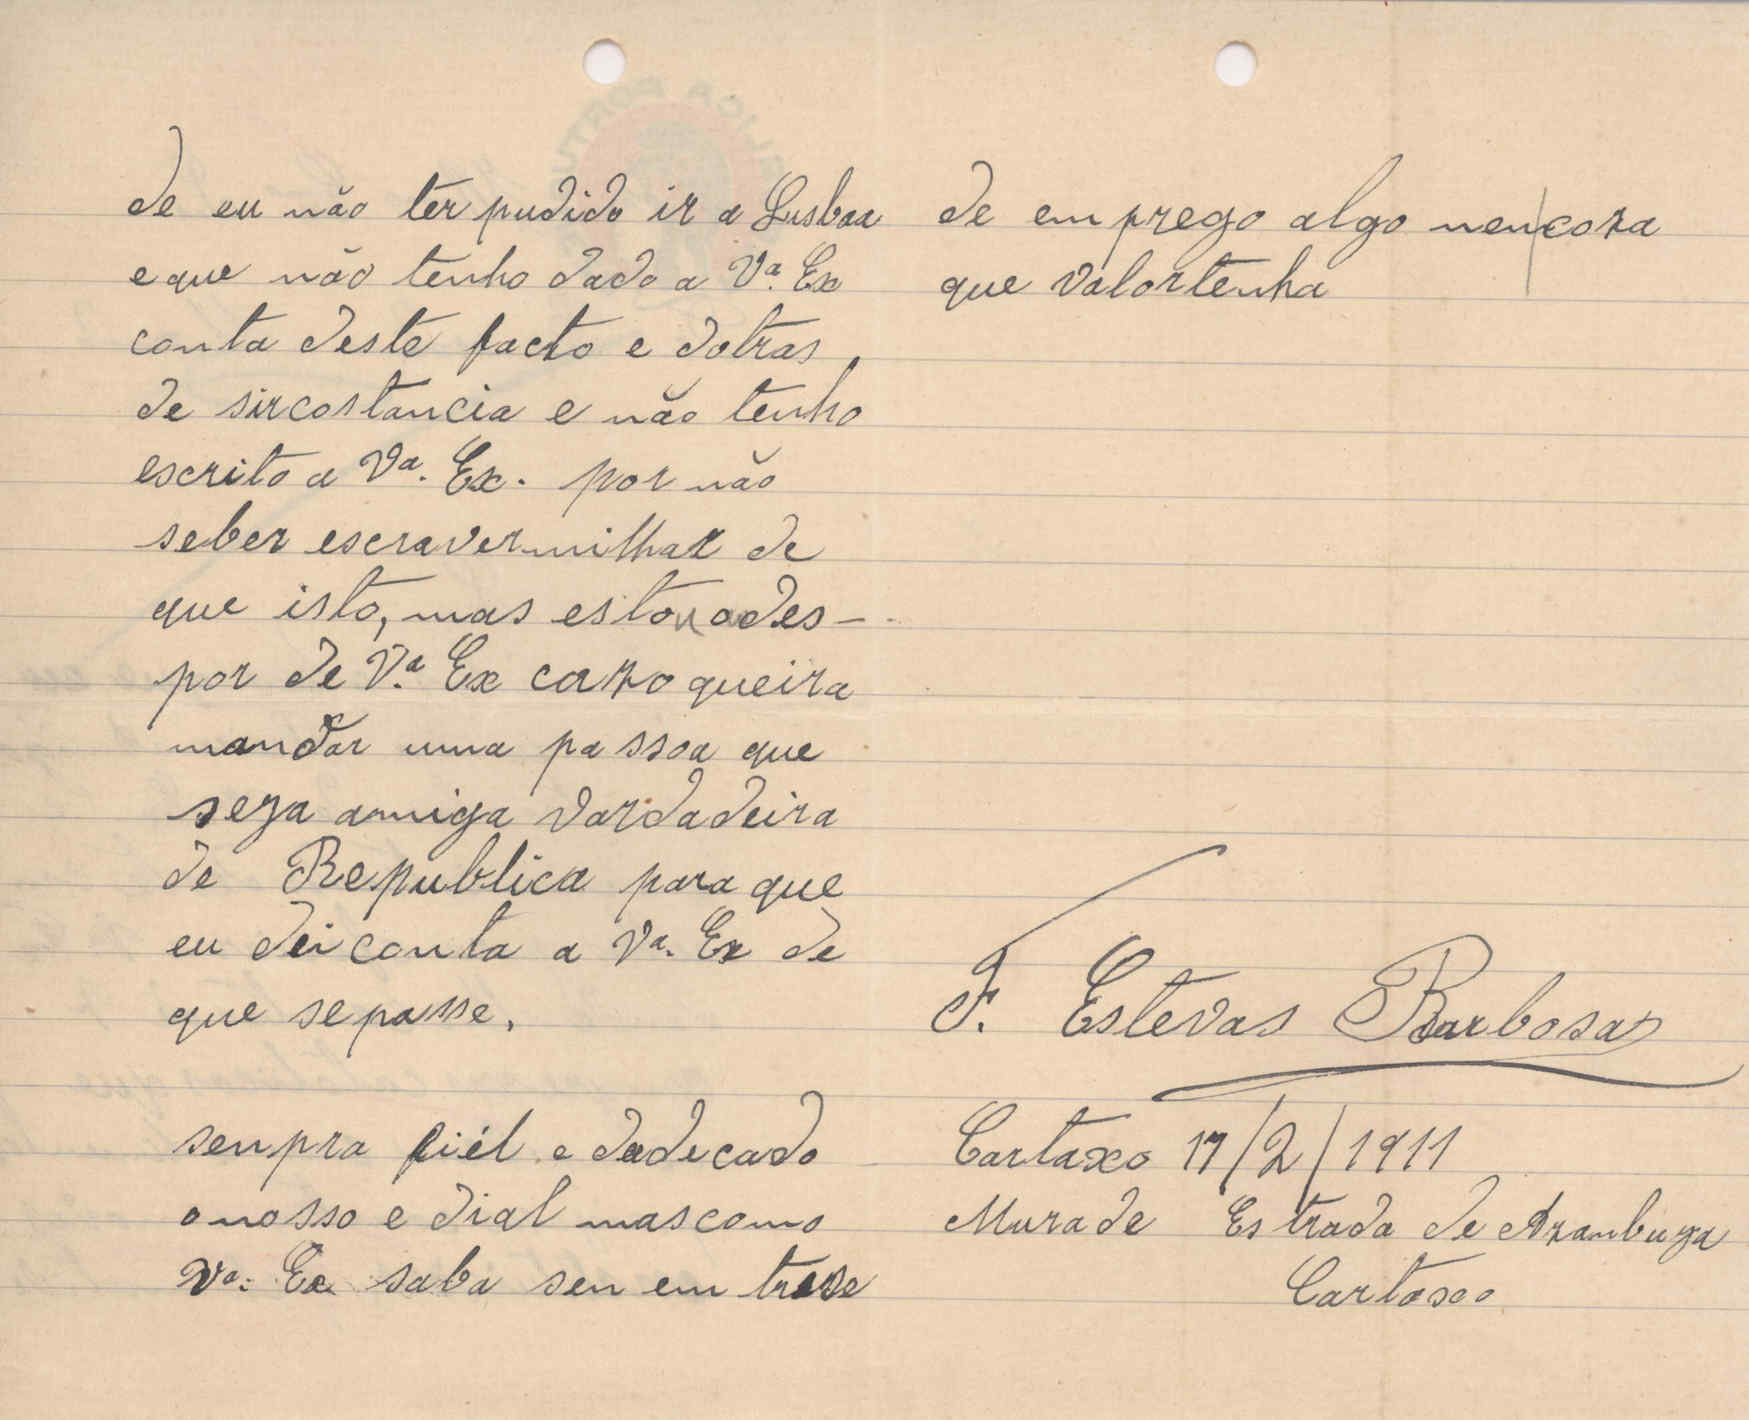 de eu não ter pudido ir a Lusboa
e que não tenho dado a Vª. Ex
conta deste facto e dotras
de sircostancia e não tenho
escrito a Vª. Ex. por não
seber escraver milhar de
que isto, mas estou a des-
por de Vª. Ex cazo queira
mandar uma passoa que
seza amiga vardadeira
de Republica para que
eu dei conta a Vª. Ex de
que se passe.
senpra fiél e dadecado
o nosso e dial mas como
Vª. Ex saba sen em trese
de emprego algo nen coza
que valor tenha
F. Estevas Barbosa
Cartaxo 17/2/1911
Mura de Estrada de Azanbuza
Cartaxo